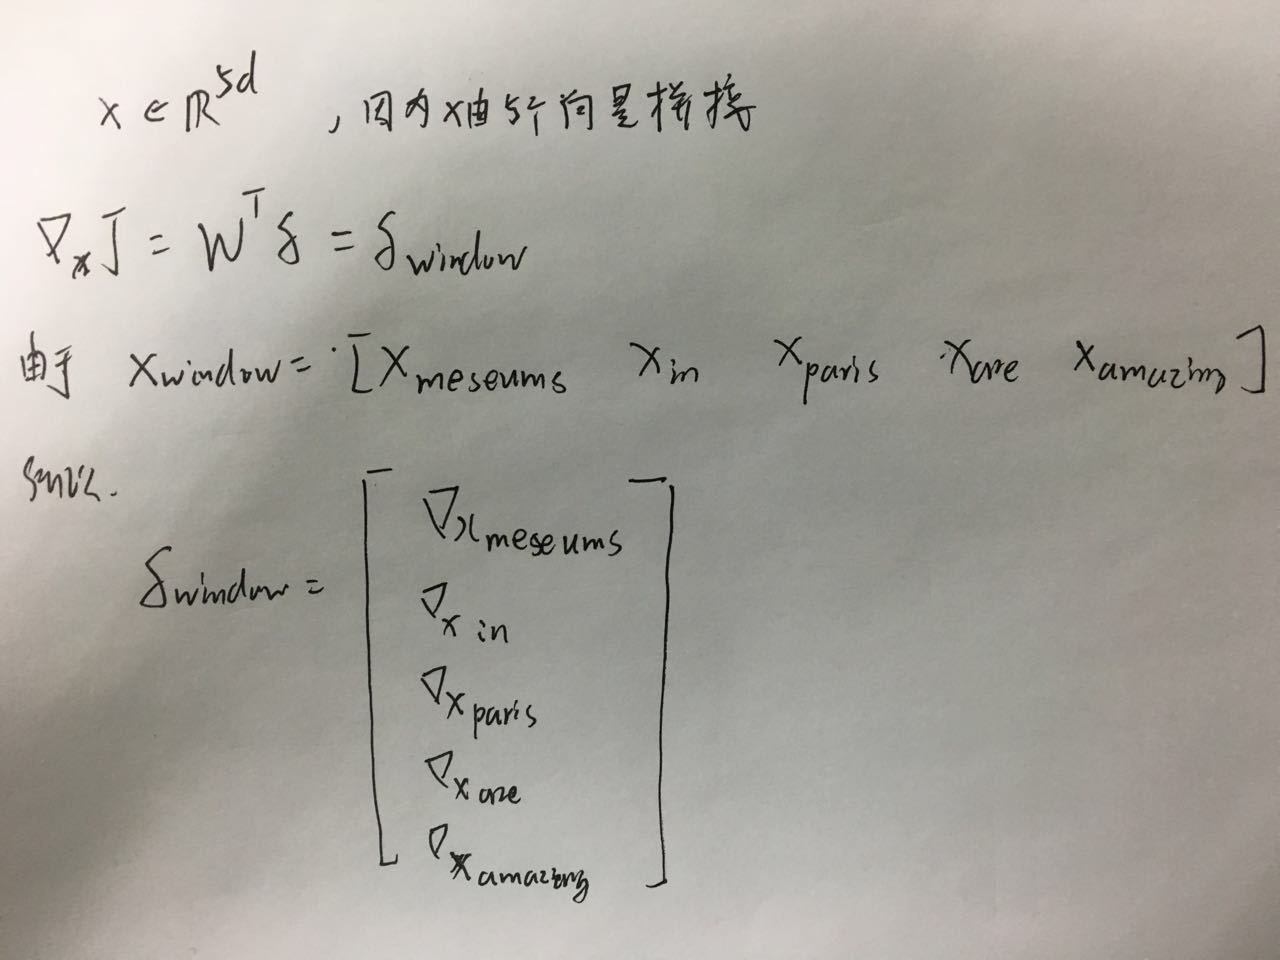 x ∈ ℝ^5d , 因为 x由5个向量拼接
∇_x J = W^T δ = δ_window
由于 x_window = [x_meseums x_in x_paris x_are x_amazing]
所以.
δ_window = [
∇x_meseums
∇x_in
∇x_paris
∇x_are
∇x_amazing
]